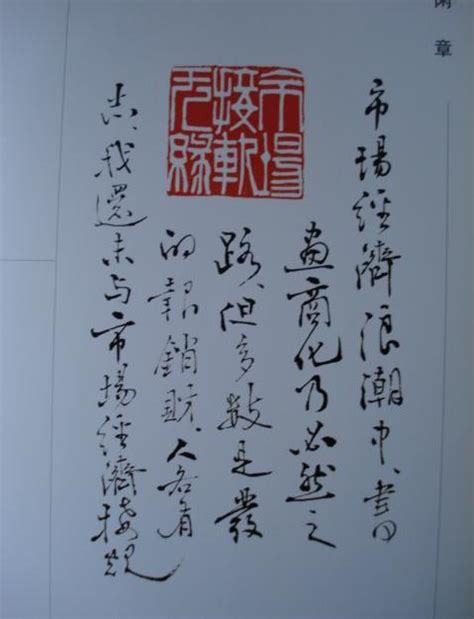 章
市場
接軌
无緣
市場經濟浪潮中、書
畫商化乃必然之
路、但多數是發
的報銷財、人各有
志、我還未与市場經濟接軌